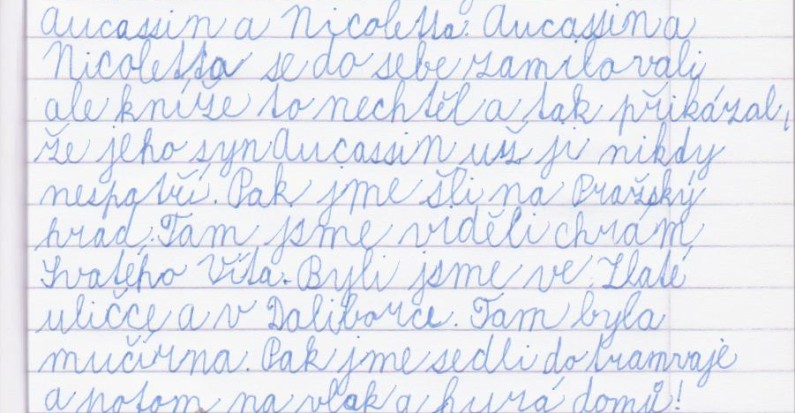 Aucassin a Nicoletta. Aucassin a
Nicoletta se do sebe zamilovali
ale kníže to nechtěl a tak přikázal,
že jeho syn Aucassin už ji nikdy
nespatří. Pak jme šli na Pražský
hrad. Tam jsme viděli chrám
Svatého Víta. Byli jsme ve Zlaté
uličče a v Daliborce. Tam byla
mučírna. Pak jme sedli do tramvaje
a potom na vlak a hurá domů!